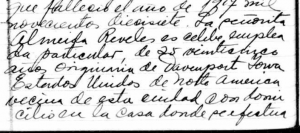 que falleció el año de 1917 mil
novecientos diecisiete. La presunta
Almeida Reveles es célibe, emplea
da particular, de 25 veinticinco
años, originaria de Davenport Iowa
Estados Unidos de Norte America
vecina de esta ciudad con domi
cilio en la casa donde perfectua